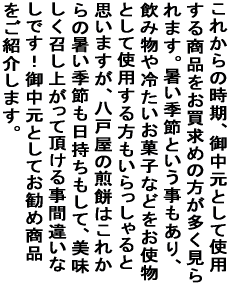 これからの時期、御中元として使用
する商品をお買求めの方が多く見ら
れます。暑い季節という事もあり、
飲み物や冷たいお菓子などをお使物
として使用する方もいらっしゃると
思いますが、八戸屋の煎餅はこれか
らの暑い季節も日持ちもして、美味
しく召し上がって頂ける事間違いな
しです！御中元としてお勧め商品
をご紹介します。